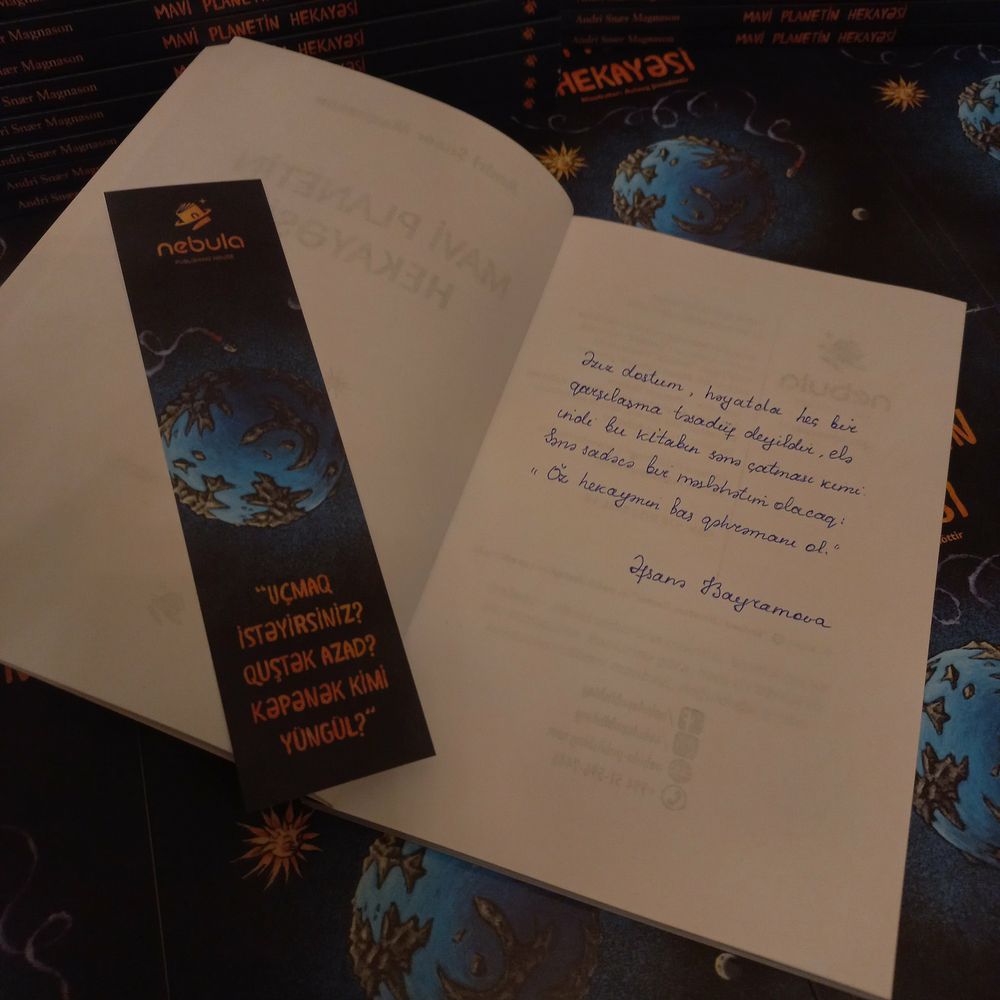 Magnason
MAVİ PLANETİN HEKAYƏSİ
Snær Magnason
MAVİ PLANETİN HEKAYƏSİ
Snær Magnason
MAVİ PLANETİN HEKAYƏSİ
Snær Magnason
Andri Snær Magnason
Andri Snær Magnason
Andri Snær Magnason
Andri Snær Magnason
MAVİ PLANETİN HEKAYƏSİ
Andri Snær Magnason
MAVİ PLANETİN HEKAYƏSİ
HEKAYƏSİ
Andri Snær Magnason
MAVİ PLANETİN
HEKAYƏSİ
nebula
PUBLISHING HOUSE
"UÇMAQ
İSTƏYİRSİNİZ?
QUŞTƏK AZAD?
KƏPƏNƏK KİMİ
YÜNGÜL?"
nebula
Əziz dostum, həyatda heç bir
qarşılaşma təsadüf deyildir, elə
indi bu kitabın sənə çatması kimi.
Sənə sadəcə bir məsləhətim olacaq:
"Öz hekayənin baş qəhrəmanı ol."
Əfsanə Bayramova